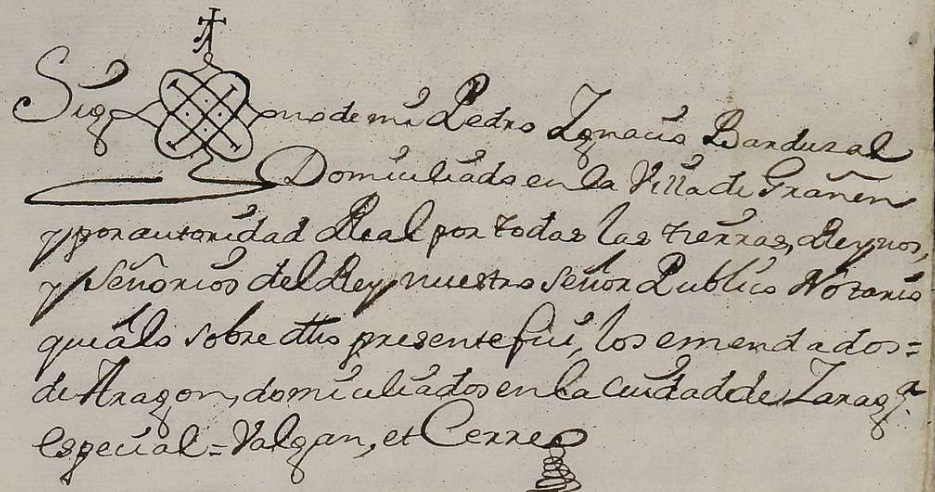 Sig no de mi Pedro Ignacio Barduzal
Domiciliado en la Villa de Grañen
y por autoridad Real por todas las tierras, Reynos,
y Señorios del Rey nuestro Señor Publico Notario
qui alo sobre dho presente fui, los emendados=
de Aragon, domiciliados en la Ciudad de Zaragª.
especial=Valgan, et Cerre